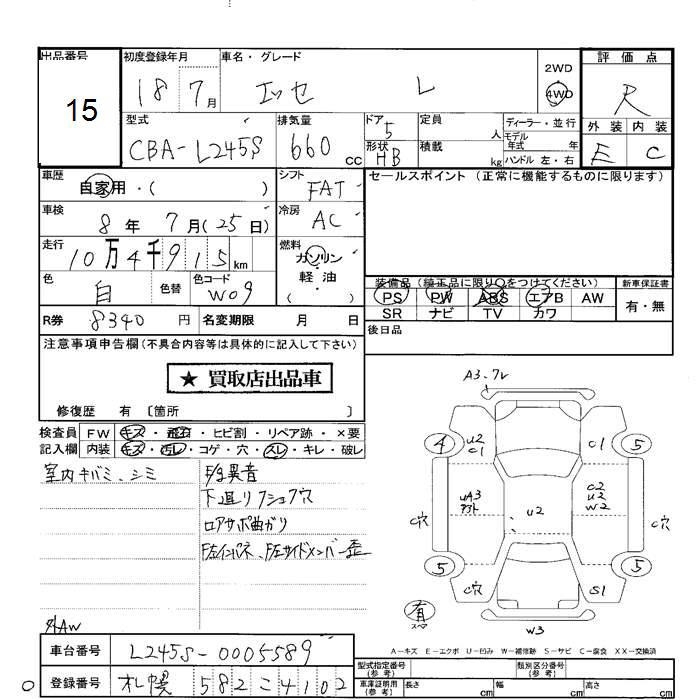 出品番号 初度登録年月 車名・グレード 2WD 評価点
15 18 7月 エッセ L 4WD R
型式 排気量 ドア 5 定員 人 ディーラー・並行 外装 内装
CBA-L245S 660cc 形状 HB 積載 kg モデル年式 年 ハンドル 左・右 E C
車歴 自家用・( ) シフト FAT セールスポイント (正常に機能するものに限ります)
車検 8年 7月(25日) 冷房 AC
走行 10万4千915km 燃料 ガソリン・軽油 ( )
色 自 色替 色コード W09 装備品(純正品に限り○をつけてください) 新車保証書
PS PW ABS エアB AW 有・無
SR ナビ TV カワ
R券 8340円 名変期限 月 日 後日品
注意事項申告欄(不具合内容等は具体的に記入して下さい)
★ 買取店出品車
修復歴 有 〔箇所 〕
検査員 FW キズ・飛石・ヒビ割・リペア跡・×要
記入欄 内装 キズ・汚レ・コゲ・穴・スレ・キレ・破レ
室内キバミ、シミ
F/g異音
下廻リフショク穴
ロアサポ曲ガリ
F左インパネ、F左サイドメンバー歪
A3.フレ
4 U2 C1 C1 5
C穴 UA3 アクト U2 C2 U2 W2 C穴
5 C穴 S1 5
有 スペア W3
A-キズ E-エクボ U-凹み W-補修跡 S-サビ C-腐食 XX-交換済
外AW
車台番号 L245S-0005589
登録番号 札幌 582 こ 4102
型式指定番号(参考) 類別区分番号(参考)
車庫証明用(参考) 長さ cm 幅 cm 高さ cm